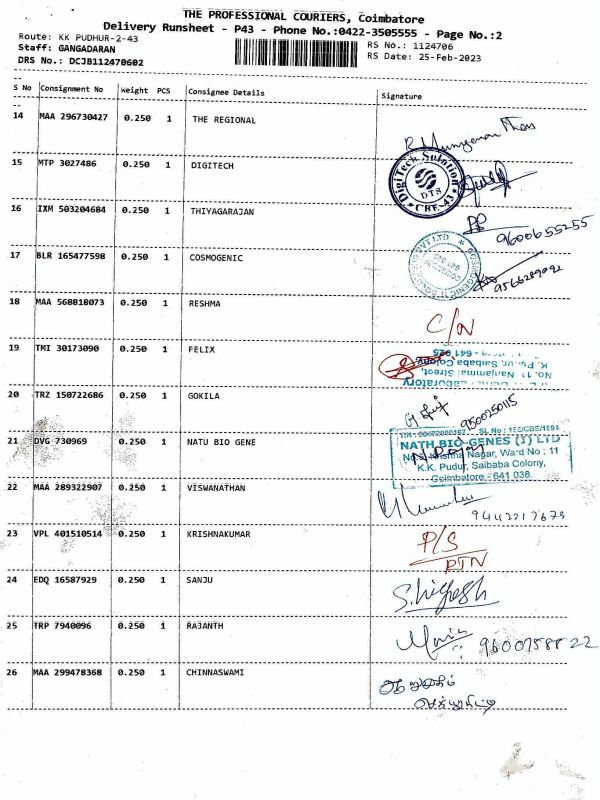 THE PROFESSIONAL COURIERS, Coimbatore
Delivery Runsheet - P43 - Phone No.:0422-3505555 - Page No.:2
Route: KK PUDHUR-2-43
RS No.: 1124706
Staff: GANGADARAN
RS Date: 25-Feb-2023
DRS No.: DCJB112470602
S No Consignment No Weight PCS Consignee Details Signature
14 MAA 296730427 0.250 1 THE REGIONAL
15 MTP 3027486 0.250 1 DIGITECH
DigiTech Solution
DTS
CBE-43
16 IXM 503204684 0.250 1 THIYAGARAJAN
9600655255
17 BLR 165477598 0.250 1 COSMOGENIC
9566289092
18 MAA 568818073 0.250 1 RESHMA
C/N
19 TMI 30173090 0.250 1 FELIX
No. 11, Nanjammal Street,
K. Pudur, Saibaba Colony,
641 025
20 TRZ 150722686 0.250 1 GOKILA
9500250115
21 DVG 730969 0.250 1 NATU BIO GENE
NATH BIO-GENES (I) LTD
Krishna Nagar, Ward No : 11
K.K. Pudur, Saibaba Colony,
Coimbatore - 641 038.
22 MAA 289322907 0.250 1 VISWANATHAN
23 VPL 401510514 0.250 1 KRISHNAKUMAR
P/S
RTN
24 EDQ 16587929 0.250 1 SANJU
25 TRP 7940096 0.250 1 RAJANTH
26 MAA 299478368 0.250 1 CHINNASWAMI